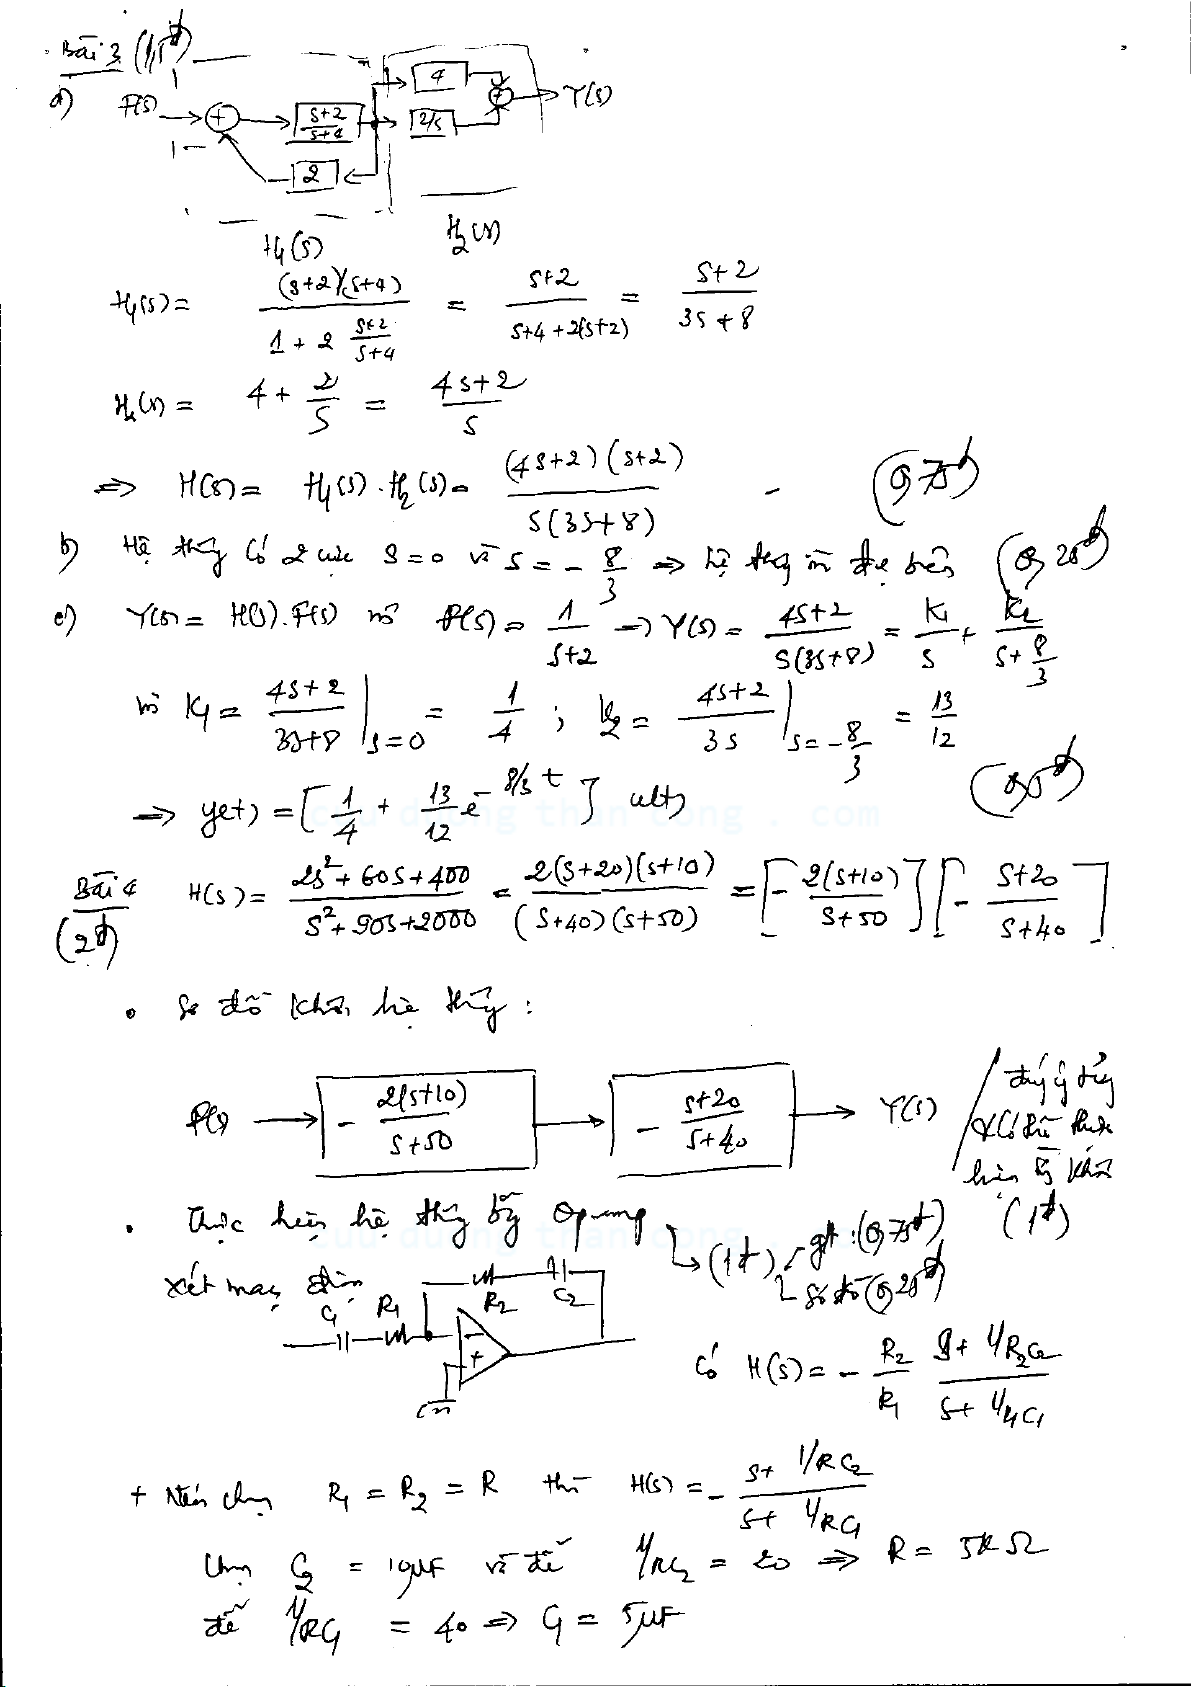 Bài 3 (1,5đ)
a) F(s) + s+2/s+4 4 2/s + Y(s)
- 2
H₁(s) H₂(s)
H₁(s) = (s+2)/(s+4) / 1 + 2 s+2/s+4 = s+2 / s+4+2(s+2) = s+2 / 3s+8
H₂(s) = 4 + 2/s = 4s+2 / s
=> H(s) = H₁(s).H₂(s) = (4s+2)(s+2) / s(3s+8) (0,75đ)
b) Hệ thống có 2 cực s=0 và s = -8/3 => hệ thống ổn định biên (0,25đ)
c) Y(s) = H(s).F(s) mà F(s) = 1/s+2 => Y(s) = 4s+2 / s(3s+8) = K₁/s + K₂/s+8/3
K₁ = 4s+2 / 3s+8 |s=0 = 1/4 ; K₂ = 4s+2 / 3s |s=-8/3 = 13/12
=> y(t) = [1/4 + 13/12 e^-8/3t] u(t) (0,5đ)
cuu duong than cong . com
Bài 4 (2đ) H(s) = 2s²+60s+400 / s²+90s+2000 = 2(s+20)(s+10) / (s+40)(s+50) = [- 2(s+10) / s+50] [- s+20 / s+40]
• Sơ đồ khối hệ thống :
F(s) - 2(s+10) / s+50 - s+20 / s+40 Y(s)
(1đ)
• Thực hiện hệ thống bằng Opamp (1đ) gt : (0,75đ)
sơ đồ (0,25đ)
cuu duong than cong . com
Xét mạch điện C₁ R₁ R₂ C₂ - +
Có H(s) = - R₂/R₁ s + 1/R₂C₂ / s + 1/R₁C₁
+ Nếu chọn R₁ = R₂ = R thì H(s) = - s + 1/RC₂ / s + 1/RC₁
Chọn C₂ = 10μF và để 1/RC₂ = 20 => R = 5kΩ
để 1/RC₁ = 40 => C₁ = 5μF